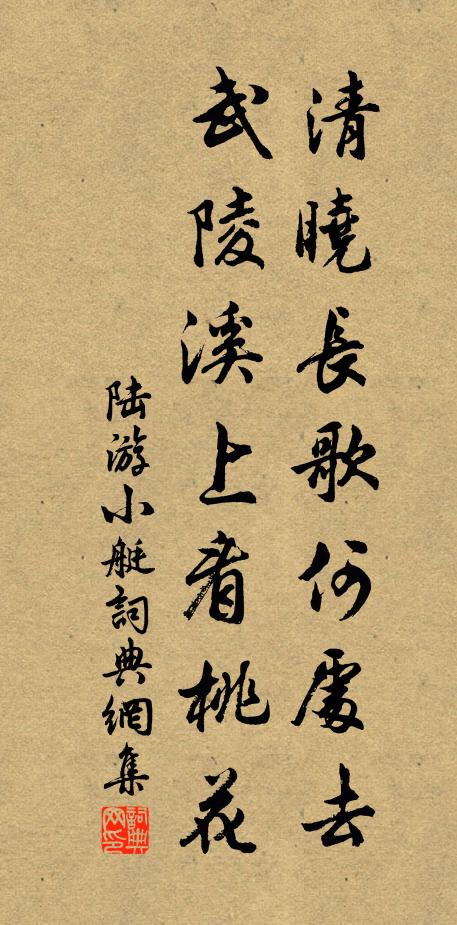 清曉長歌何處去
武陵溪上看桃花
陸游小艇詞典網集
詞典网印